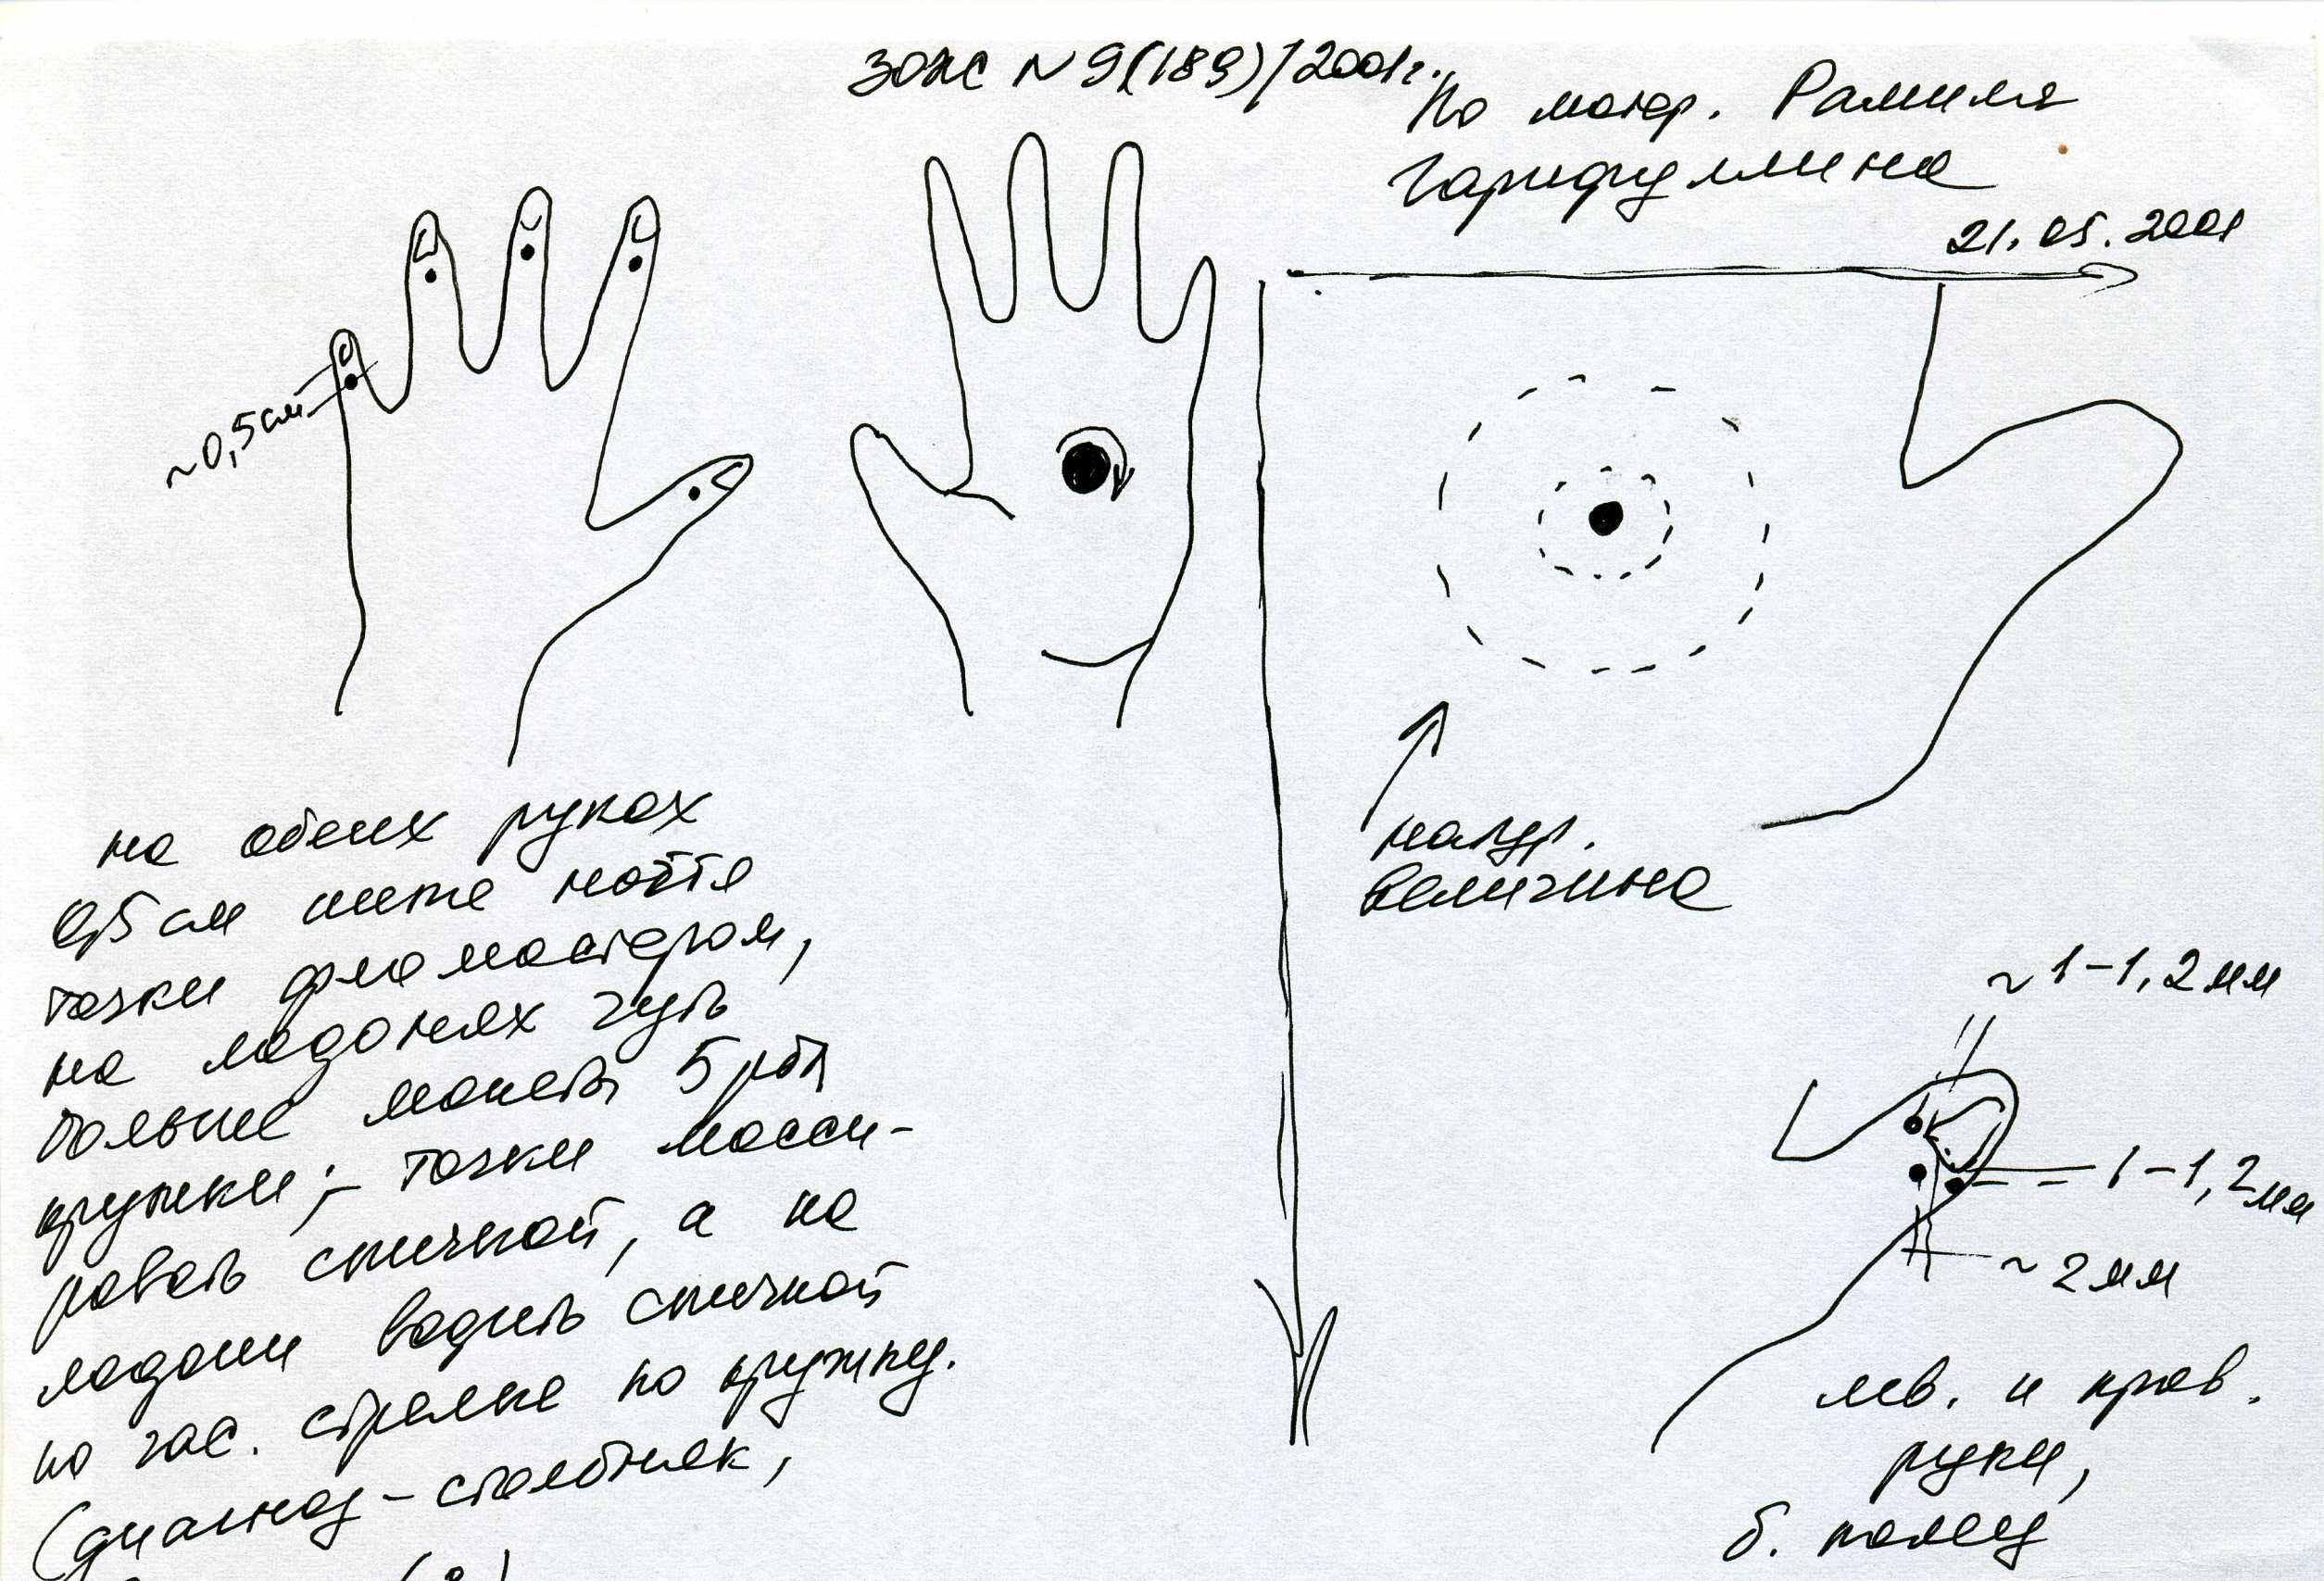 ЗОЖ N 9(189)/2001г.,
По матер. Рамиля
Гарифуллина
21.05.2001
~0,5см
на обеих руках
0,5 см ниже ногтя
точки фломастером,
на ладонях чуть
больше монеты 5 руб
кружки; – точки масси-
ровать спичкой, а на
ладони водить спичкой
по час. стрелке по кружку.
(диагноз – столбняк,
натур.
величина
~1–1,2 мм
1–1,2 мм
~2 мм
лев. и прав.
руки,
б. палец